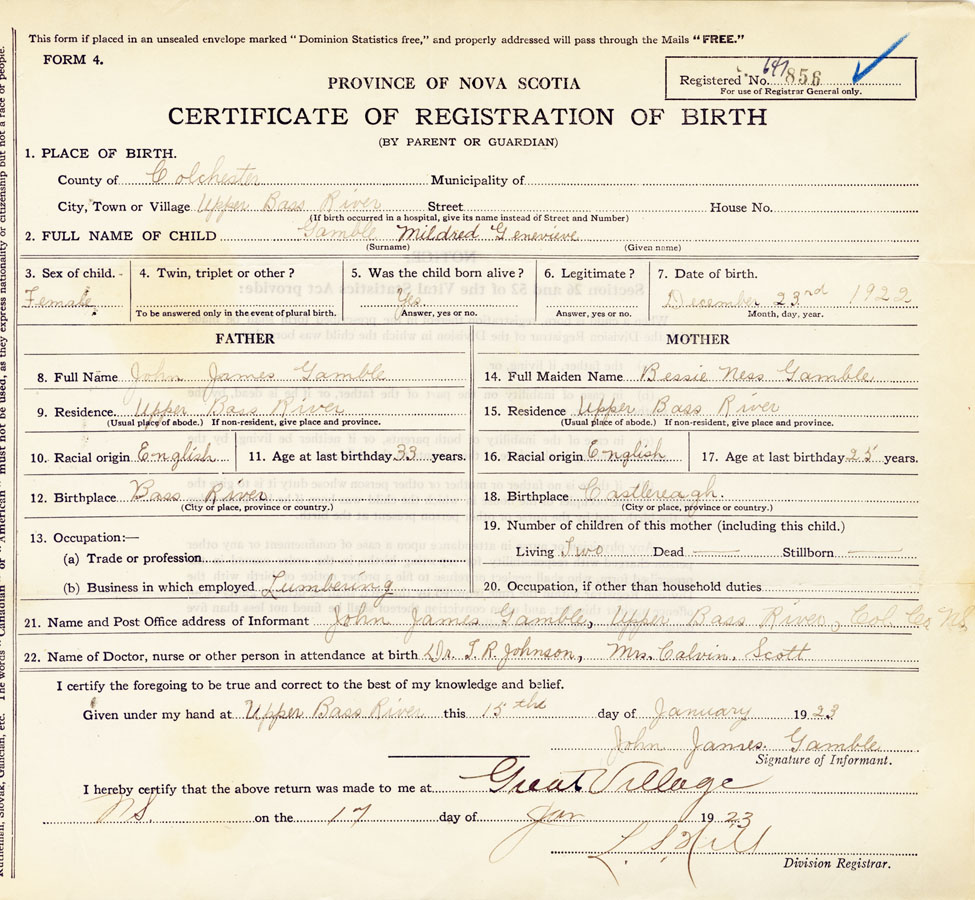 This form if placed in an unsealed envelope marked “Dominion Statistics free,” and properly addressed will pass through the Mails “FREE.”
FORM 4.
Registered No. 856
For use of Registrar General only.
PROVINCE OF NOVA SCOTIA
CERTIFICATE OF REGISTRATION OF BIRTH
(BY PARENT OR GUARDIAN)
1. PLACE OF BIRTH.
County of Colchester Municipality of
City, Town or Village Upper Bass River Street House No.
(If birth occurred in a hospital, give its name instead of Street and Number)
2. FULL NAME OF CHILD Gamble Mildred Genevieve
(Surname) (Given name)
3. Sex of child. - 4. Twin, triplet or other? 5. Was the child born alive? 6. Legitimate? 7. Date of birth.
Female Yes December 23rd 1922
To be answered only in the event of plural birth. Answer, yes or no. Answer, yes or no. Month, day, year.
FATHER MOTHER
8. Full Name John James Gamble 14. Full Maiden Name Bessie Ness Gamble
9. Residence Upper Bass River 15. Residence Upper Bass River
(Usual place of abode.) If non-resident, give place and province. (Usual place of abode.) If non-resident, give place and province.
10. Racial origin English 11. Age at last birthday 33 years. 16. Racial origin English 17. Age at last birthday 25 years.
12. Birthplace Bass River 18. Birthplace Castlereagh.
(City or place, province or country.) (City or place, province or country.)
13. Occupation:— 19. Number of children of this mother (including this child.)
(a) Trade or profession Living Two Dead — Stillborn —
(b) Business in which employed Lumbering 20. Occupation, if other than household duties
21. Name and Post Office address of Informant John James Gamble, Upper Bass River, Col. Co NS
22. Name of Doctor, nurse or other person in attendance at birth Dr. T. R. Johnson, Mrs. Calvin. Scott
I certify the foregoing to be true and correct to the best of my knowledge and belief.
Given under my hand at Upper Bass River this 15th day of January 1923
John James. Gamble
Signature of Informant.
I hereby certify that the above return was made to me at Great Village
NS. on the 17 day of Jan 1923
L. S. Hill
Division Registrar.